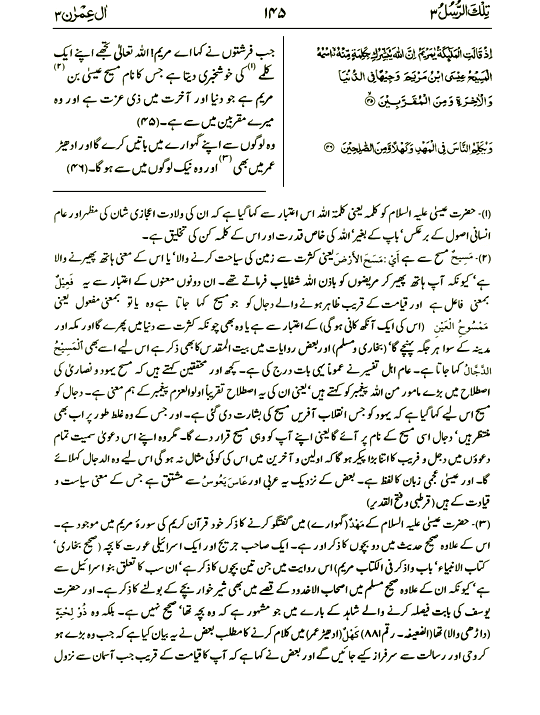 تِلْكَ الرُّسُلُ ۳
۱۴۵
اٰلِ عِمْرٰن ۳
اِذْ قَالَتِ الْمَلٰٓئِكَةُ يٰمَرْيَمُ اِنَّ اللّٰهَ يُبَشِّرُكِ بِكَلِمَةٍ مِّنْهُ اسْمُهُ
الْمَسِيْحُ عِيْسَى ابْنُ مَرْيَمَ وَجِيْهًا فِى الدُّنْيَا
وَالْاٰخِرَةِ وَمِنَ الْمُقَرَّبِيْنَ ۴۵
وَيُكَلِّمُ النَّاسَ فِى الْمَهْدِ وَكَهْلًا وَّمِنَ الصّٰلِحِيْنَ ۴۶
جب فرشتوں نے کہا اے مریم! اللہ تعالیٰ تجھے اپنے ایک
کلمے (۱) کی خوشخبری دیتا ہے جس کا نام مسیح عیسیٰ بن (۲)
مریم ہے جو دنیا اور آخرت میں ذی عزت ہے اور وہ
میرے مقربین میں سے ہے۔ (۴۵)
وہ لوگوں سے اپنے گہوارے میں باتیں کرے گا اور ادھیڑ
عمر میں بھی (۳) اور وہ نیک لوگوں میں سے ہو گا۔ (۴۶)
(۱)- حضرت عیسیٰ علیہ السلام کو کلمہ یعنی کلمۃ اللہ اس اعتبار سے کہا گیا ہے کہ ان کی ولادت اعجازی شان کی مظہر اور عام
انسانی اصول کے برعکس' باپ کے بغیر' اللہ کی خاص قدرت اور اس کے کلمہ کن کی تخلیق ہے۔
(۲)- مَسِيْحٌ مسح سے ہے أَيْ: مَسَحَ الأَرْضَ یعنی کثرت سے زمین کی سیاحت کرنے والا' یا اس کے معنی ہاتھ پھیرنے والا
ہے' کیونکہ آپ ہاتھ پھیر کر مریضوں کو باذن اللہ شفایاب فرماتے تھے۔ ان دونوں معنوں کے اعتبار سے یہ فَعِيْلٌ
بمعنی فاعل ہے اور قیامت کے قریب ظاہر ہونے والے دجال کو جو مسیح کہا جاتا ہے وہ یا تو بمعنی مفعول یعنی
مَمْسُوحُ الْعَيْنِ (اس کی ایک آنکھ کانی ہو گی) کے اعتبار سے ہے یا وہ بھی چونکہ کثرت سے دنیا میں پھرے گا اور مکہ اور
مدینہ کے سوا ہر جگہ پہنچے گا' (بخاری و مسلم) اور بعض روایات میں بیت المقدس کا بھی ذکر ہے اس لیے اسے بھی اَلْمَسِيْحُ
الدَّجَّالُ کہا جاتا ہے۔ عام اہل تفسیر نے عموماً یہی بات درج کی ہے۔ کچھ اور محققین کہتے ہیں کہ مسیح یہود و نصاریٰ کی
اصطلاح میں بڑے مامور من اللہ پیغمبر کو کہتے ہیں' یعنی ان کی یہ اصطلاح تقریباً اولوالعزم پیغمبر کے ہم معنی ہے۔ دجال کو
مسیح اس لیے کہا گیا ہے کہ یہود کو جس انقلاب آفریں مسیح کی بشارت دی گئی ہے۔ اور جس کے وہ غلط طور پر اب بھی
منتظر ہیں' دجال اسی مسیح کے نام پر آئے گا یعنی اپنے آپ کو وہی مسیح قرار دے گا۔ مگر وہ اپنے اس دعویٰ سمیت تمام
دعووں میں دجل و فریب کا اتنا بڑا پیکر ہو گا کہ اولین و آخرین میں اس کی کوئی مثال نہ ہو گی اس لیے وہ الدجال کہلائے
گا۔ اور عیسیٰ عجمی زبان کا لفظ ہے۔ بعض کے نزدیک یہ عربی اور عَاسَ يَعُوسُ سے مشتق ہے جس کے معنی سیاست و
قیادت کے ہیں (قرطبی و فتح القدیر)
(۳)- حضرت عیسیٰ علیہ السلام کے مَهْدٌ (گہوارے) میں گفتگو کرنے کا ذکر خود قرآن کریم کی سورۂ مریم میں موجود ہے۔
اس کے علاوہ صحیح حدیث میں دو بچوں کا ذکر اور ہے۔ ایک صاحب جریج اور ایک اسرائیلی عورت کا بچہ (صحیح بخاری'
کتاب الانبیاء' باب واذکر فی الکتاب مریم) اس روایت میں جن تین بچوں کا ذکر ہے' ان سب کا تعلق بنو اسرائیل سے
ہے' کیونکہ ان کے علاوہ صحیح مسلم میں اصحاب الاخدود کے قصے میں بھی شیر خوار بچے کے بولنے کا ذکر ہے۔ اور حضرت
یوسف کی بابت فیصلہ کرنے والے شاہد کے بارے میں جو مشہور ہے کہ وہ بچہ تھا' صحیح نہیں ہے۔ بلکہ وہ ذُوْ لِحْيَةٍ
(داڑھی والا) تھا (الضعیفہ - رقم ۸۸۱) كَهْلٌ (ادھیڑ عمر) میں کلام کرنے کا مطلب بعض نے یہ بیان کیا ہے کہ جب وہ بڑے ہو
کر وحی اور رسالت سے سرفراز کیے جائیں گے اور بعض نے کہا ہے کہ آپ کا قیامت کے قریب جب آسمان سے نزول